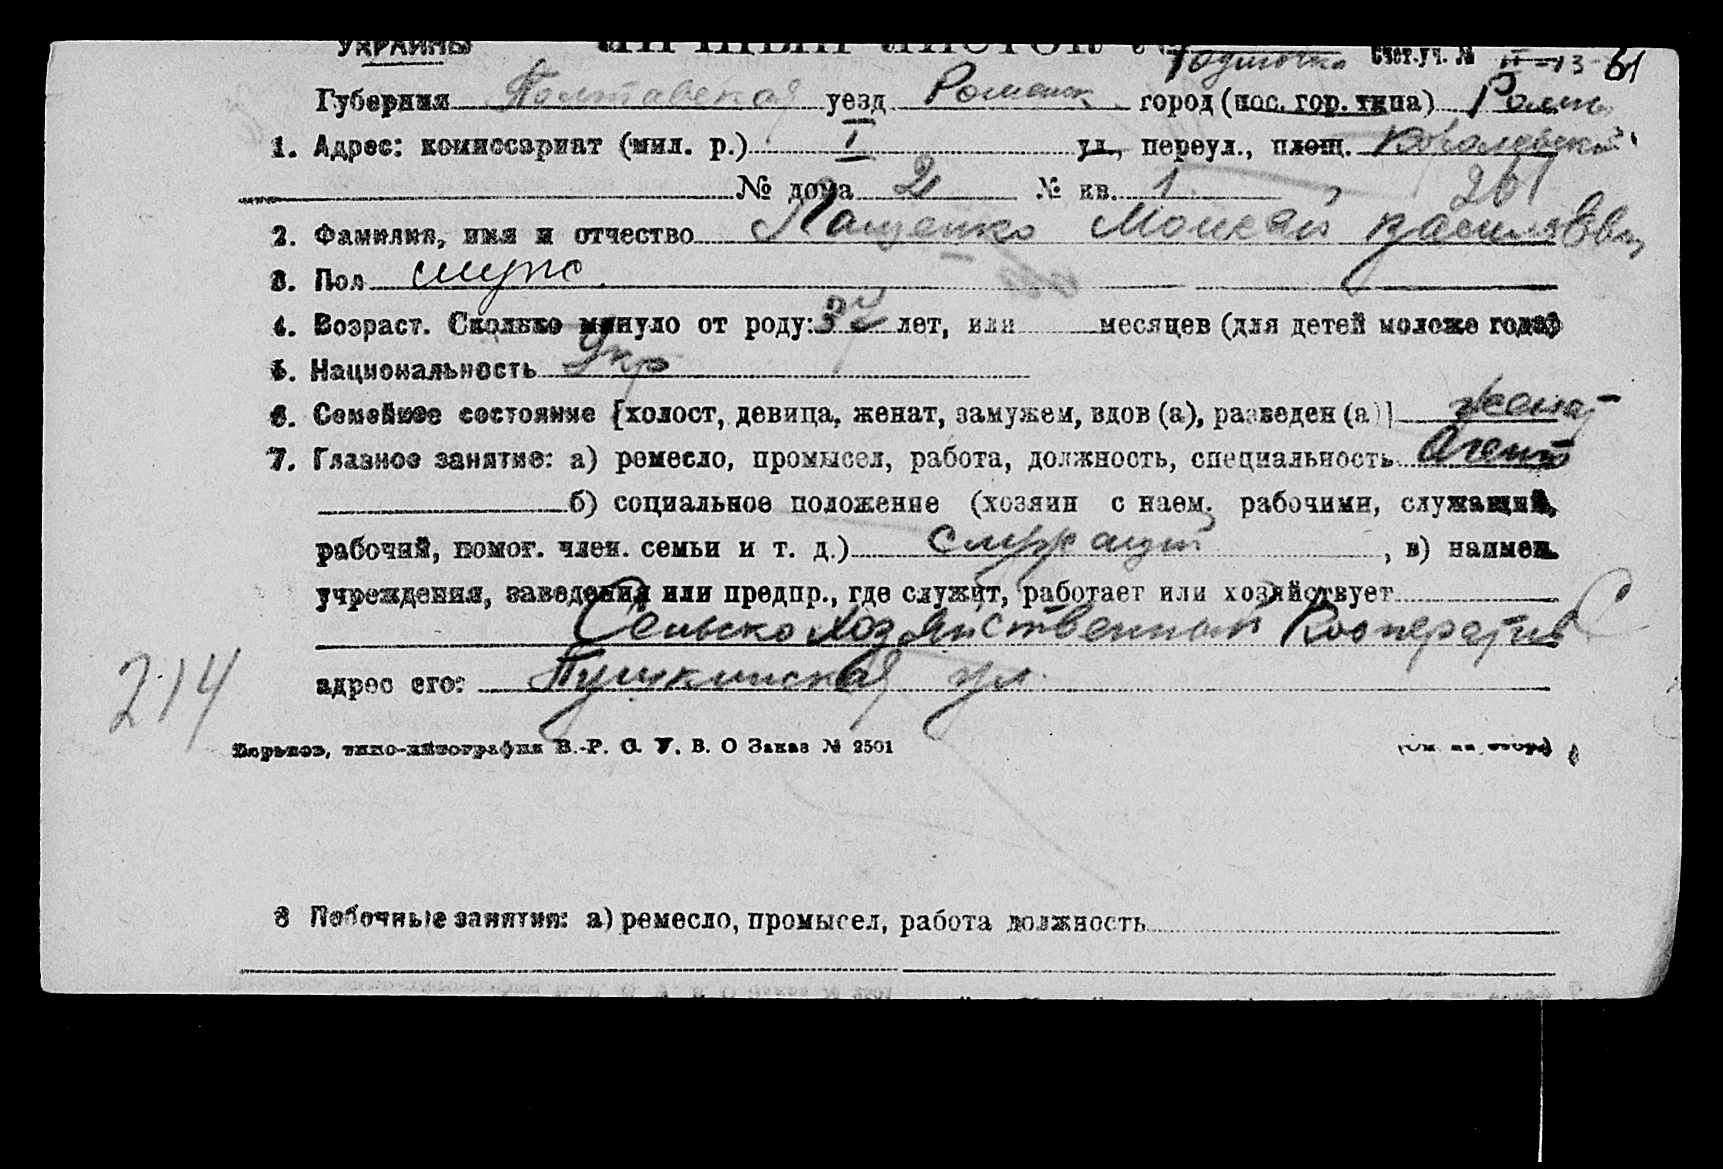 УКРАИНЫ ЛИЧНЫЙ ЛИСТОК № Счет.уч. № 61
Губерния Полтавская уезд Роменск город (пос. гор. типа) Ромны
1. Адрес: комиссариат (мил. р.) I ул., переул., площ.
№ дома 2 № кв. 1 261
2. Фамилия, имя и отчество Пащенко Моисей
3. Пол муж
4. Возраст. Сколько минуло от роду: 37 лет, или месяцев (для детей моложе года)
5. Национальность Укр
6. Семейное состояние [холост, девица, женат, замужем, вдов (а), разведен (а)] женат
7. Главное занятие: а) ремесло, промысел, работа, должность, специальность Агент
б) социальное положение (хозяин с наем. рабочими, служащий,
рабочий, помог. член. семьи и т. д.) Служащий, в) наимен.
учреждения, заведения или предпр., где служит, работает или хозяйствует
Сельско хозяйственный Кооператив С
214 адрес его: Пушкинская ул.
Харьков, типо-литография В.-Р. С. У. В. О Заказ № 2501 (См. на обор.)
8 Побочные занятия: а) ремесло, промысел, работа должность